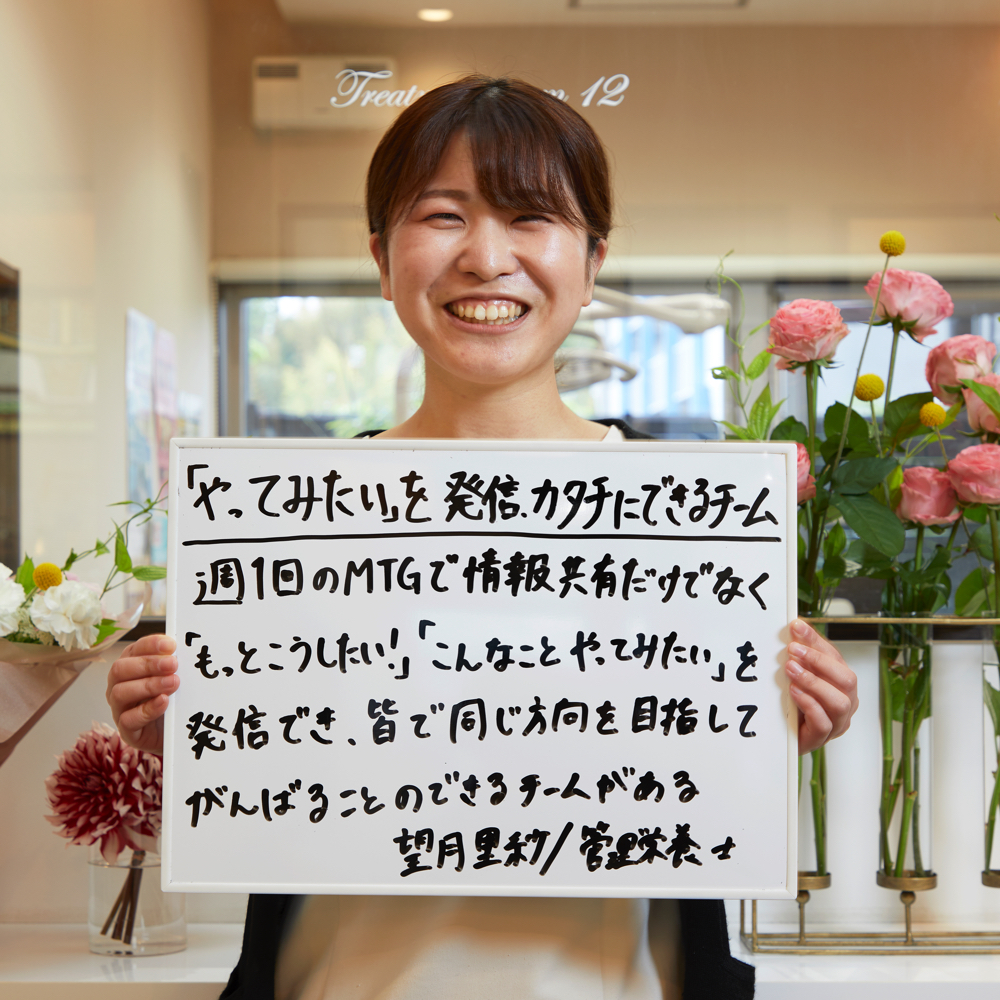 12
「やってみたい」を発信、カタチにできるチーム
週1回のMTGで情報共有だけでなく
「もっとこうしたい!」「こんなことやってみたい」を
発信でき、皆で同じ方向を目指して
がんばることのできるチームがある
望月里紗/管理栄養士